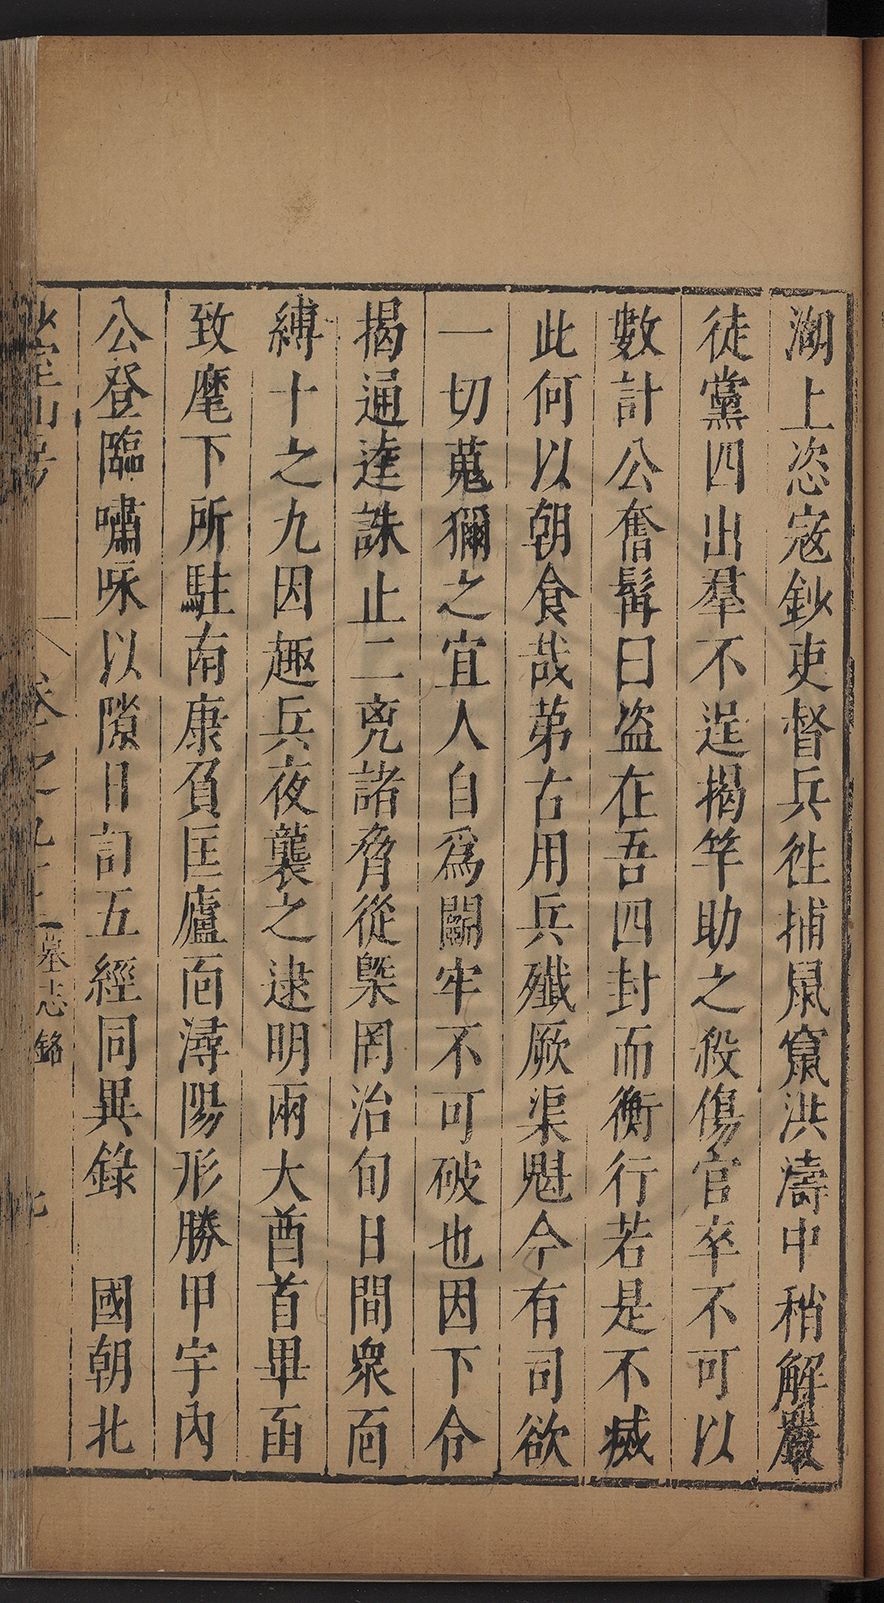 湖上恣寇鈔吏督兵徃捕鼠竄洪濤中稍解嚴
徒黨四出羣不逞揭竿助之殺傷官卒不可以
數計公奮髯曰盗在吾四封而衡行若是不烕
此何以朝食哉第古用兵殲厥渠魁今有司欲
一切蒐獮之宜人自為鬭牢不可破也因下令
揭通逵誅止二兇諸脅從槩罔治旬日間衆靣
縛十之九因趣兵夜襲之逮明兩大酋首畢函
致麾下所駐南康負匡廬靣潯陽形勝甲宇內
公登臨嘯咏以隙日訂五經同異錄　國朝北
山房 卷之九十 墓志銘